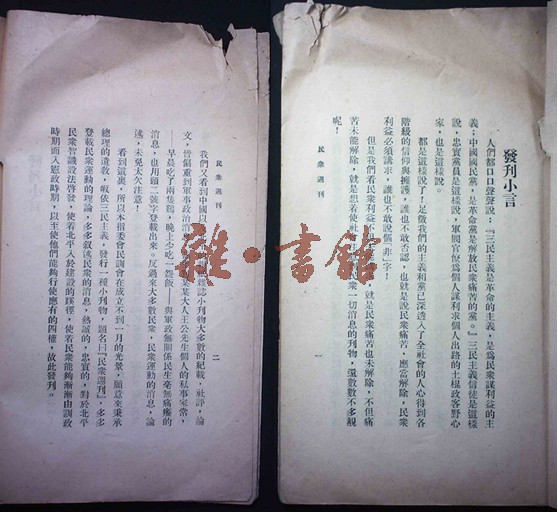 發刊小言
人們都口口聲聲說：『三民主義是革命的主義』，是爲民衆謀利益的主
義；中國國民黨，是革命黨是解放民衆痛苦的黨。』三民主義信徒是這樣
說，忠實黨員是這樣說，軍閥官僚爲個人謀利求個人出路的土棍政客野心
家，也是這樣說。
都是這樣說了！足徵我們的主義和黨已深透入了全社會的人心得到各
階級的信仰與擁護，誰也不敢否認，也就是說民衆痛苦，應當解除，民衆
利益必須講求，誰也不敢說個『非』字！
但是我們看民衆利益不 就是民衆痛苦也未解除，不但痛
苦未能解除，就是想着使社 民衆一切消息的刊物，還數數不多覩
呢！
民衆週刊
一
民衆週刊
二
我們又看到中國以 雜誌小刊物大多數的紀載，社評，論
文，皆偏重軍事政治消 某某大人王公先生個人的私事家常，
——早晨吃了兩隻鷄，晚上少吃一碗飯——與軍政無關係民生毫無痛癢的
消息，也用頭二號字登載出來。反過來大多數民衆，民衆運動的消息，論
述，未免太欠注意！
看到這裏，所以本指委會民訓會在成立不到一月的光景，願意來秉承
總理的遺敎，皈依三民主義，發行一種小刊物，題名曰『民衆週刊』，多多
登載民衆運動的理論，多多叙述民衆的消息，熱誠的，忠實的，對於北平
民衆智識設法啓發，使着北平入於建設的蹊徑，使若民衆能夠漸漸由訓政
時期而入憲政時期，以至使他們能夠行使應有的四權，故此發刊。
雅·書館